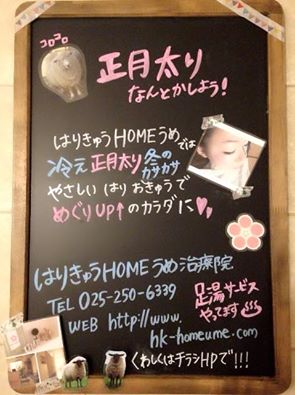 コロコロ
正月太り
なんとかしよう!
はりきゅうHOMEうめでは
冷え 正月太り 冬のカサカサ
やさしい はり おきゅうで
めぐりUP↑のカラダに♥
はりきゅうHOMEうめ治療院
TEL 025-250-6339
足湯サービス
やってます♨
WEB http://www.
hk-homeume.com
くわしくはチラシHPで!!!